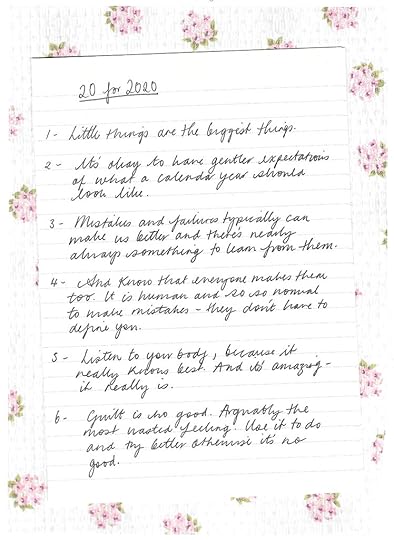 20 for 2020
1 - Little things are the biggest things.
2 - It's okay to have gentler expectations
of what a calendar year should
look like.
3 - Mistakes and failures typically can
make us better and there's nearly
always something to learn from them.
4 - And know that everyone makes them
too. It is human and so so normal
to make mistakes - they don't have to
define you.
5 - Listen to your body, because it
really knows best. And it's amazing -
it really is.
6 - Guilt is no good. Arguably the
most wasted feeling. Use it to do
and try better otherwise it's no
good.